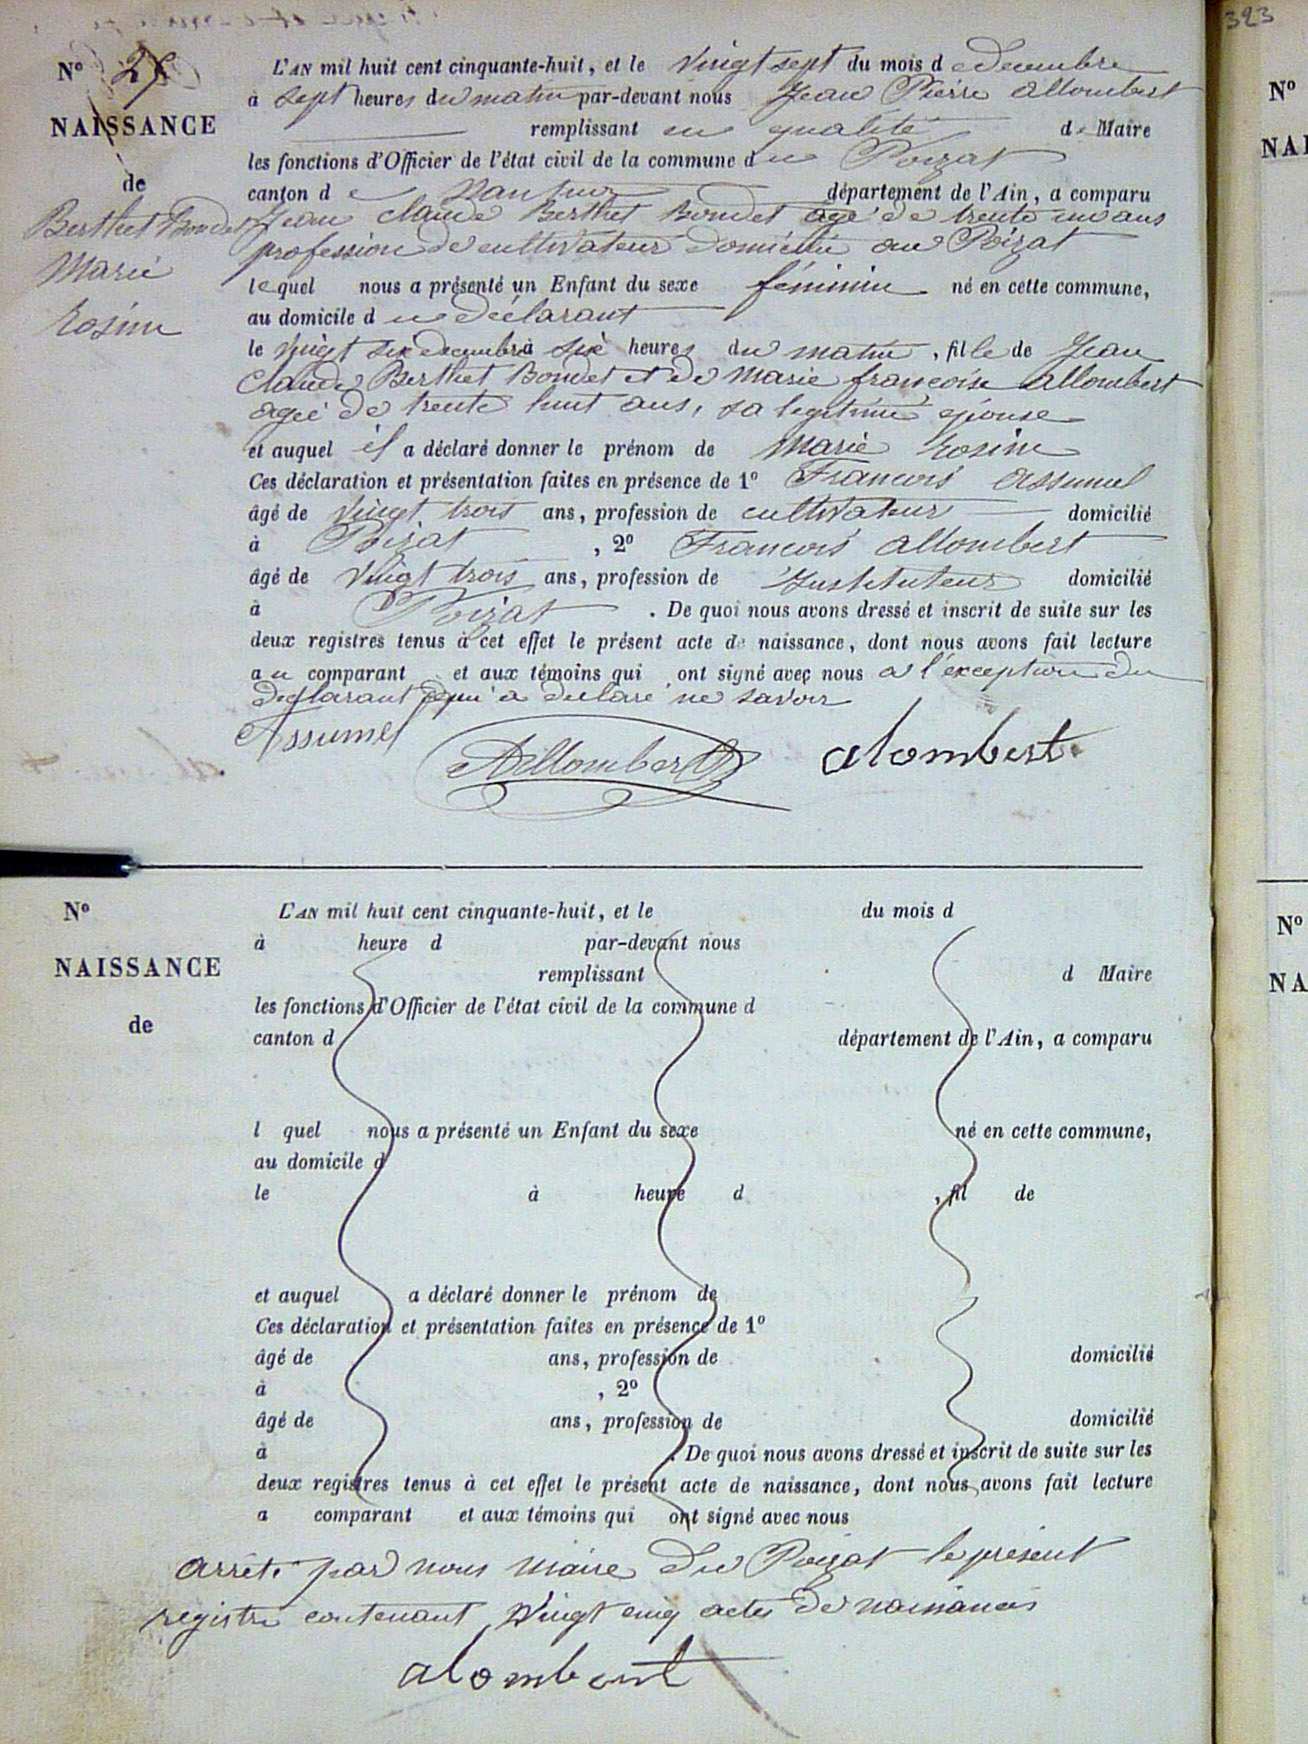 323
N° 25
NAISSANCE
de
Berthet Bondet
Marie
Rosine
L'AN mil huit cent cinquante-huit, et le Vingt sept du mois de Decembre
à Sept heures du matin par-devant nous Jean Pierre Allombert
remplissant en qualité de Maire
les fonctions d'Officier de l'état civil de la commune du Poizat
canton de Nantua département de l'Ain, a comparu
Jean Claude Berthet Bondet agé de trente un ans
profession de cultivateur domicilié au Poizat
lequel nous a présenté un Enfant du sexe féminin né en cette commune,
au domicile du déclarant
le Vingt six decembre à six heures du matin, fille de Jean
Claude Berthet Bondet et de Marie françoise Allombert
agée de trente huit ans, sa légitime épouse
et auquel il a déclaré donner le prénom de Marie Rosine
Ces déclaration et présentation faites en présence de 1° Francois Assumel
âgé de Vingt trois ans, profession de cultivateur domicilié
à Poizat, 2° Francois Allombert
âgé de Vingt trois ans, profession de Instituteur domicilié
à Poizat. De quoi nous avons dressé et inscrit de suite sur les
deux registres tenus à cet effet le présent acte de naissance, dont nous avons fait lecture
au comparant et aux témoins qui ont signé avec nous a l'exception du
declarant qui a declaré ne savoir
Assumel Allombert alombert
N°
NAISSANCE
de
L'AN mil huit cent cinquante-huit, et le du mois d
à heure d par-devant nous
remplissant d Maire
les fonctions d'Officier de l'état civil de la commune d
canton d département de l'Ain, a comparu
l quel nous a présenté un Enfant du sexe né en cette commune,
au domicile d
le à heure d , fil de
et auquel a déclaré donner le prénom de
Ces déclaration et présentation faites en présence de 1°
âgé de ans, profession de domicilié
à , 2°
âgé de ans, profession de domicilié
à . De quoi nous avons dressé et inscrit de suite sur les
deux registres tenus à cet effet le présent acte de naissance, dont nous avons fait lecture
a comparant et aux témoins qui ont signé avec nous
arrêté par nous Maire du Poizat le présent
registre contenant Vingt cinq actes de naissances
alombert
N°
NAI
N°
NA